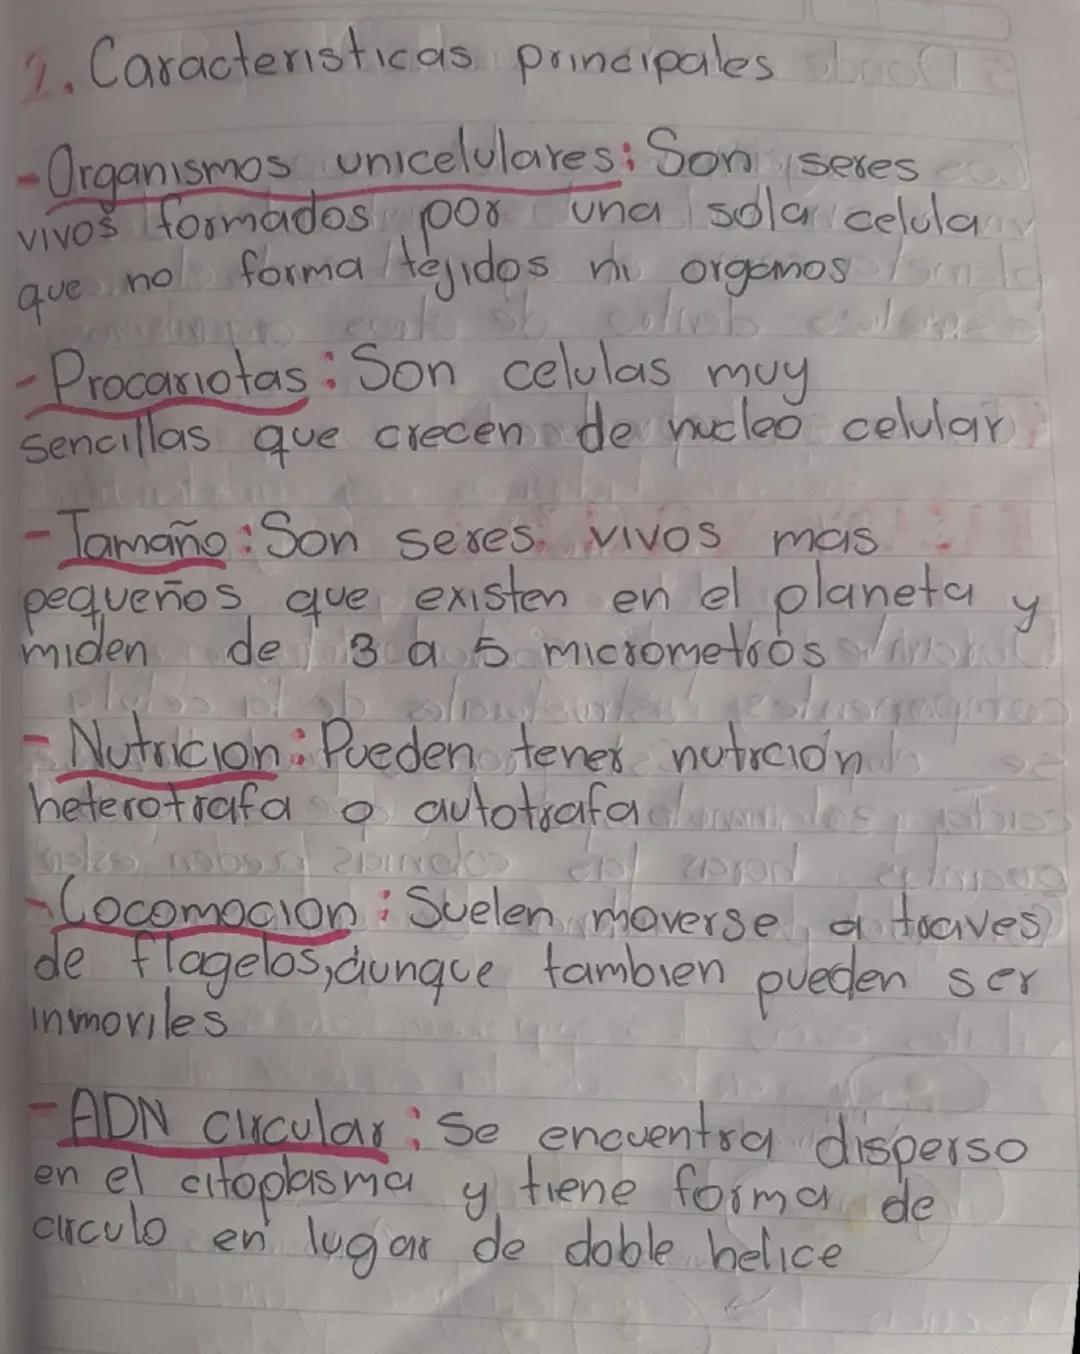 2. Caracteristicas principales
- Organismos unicelulares: Son seres
vivos formados por una sola celula
que no forma tejidos ni organos
- Procariotas: Son celulas muy
sencillas que crecen de nucleo celular
- Tamaño: Son seres vivos mas
pequeños que existen en el planeta y
miden de 3 a 5 micrometros
- Nutricion: Pueden tener nutrción
heterotrafa o autotrafa
- Cocomocion: Suelen moverse a traves
de flagelos, aunque tambien pueden ser
inmoviles
- ADN circular: Se encuentra disperso
en el citoplasma y tiene forma de
circulo en lugar de doble helice